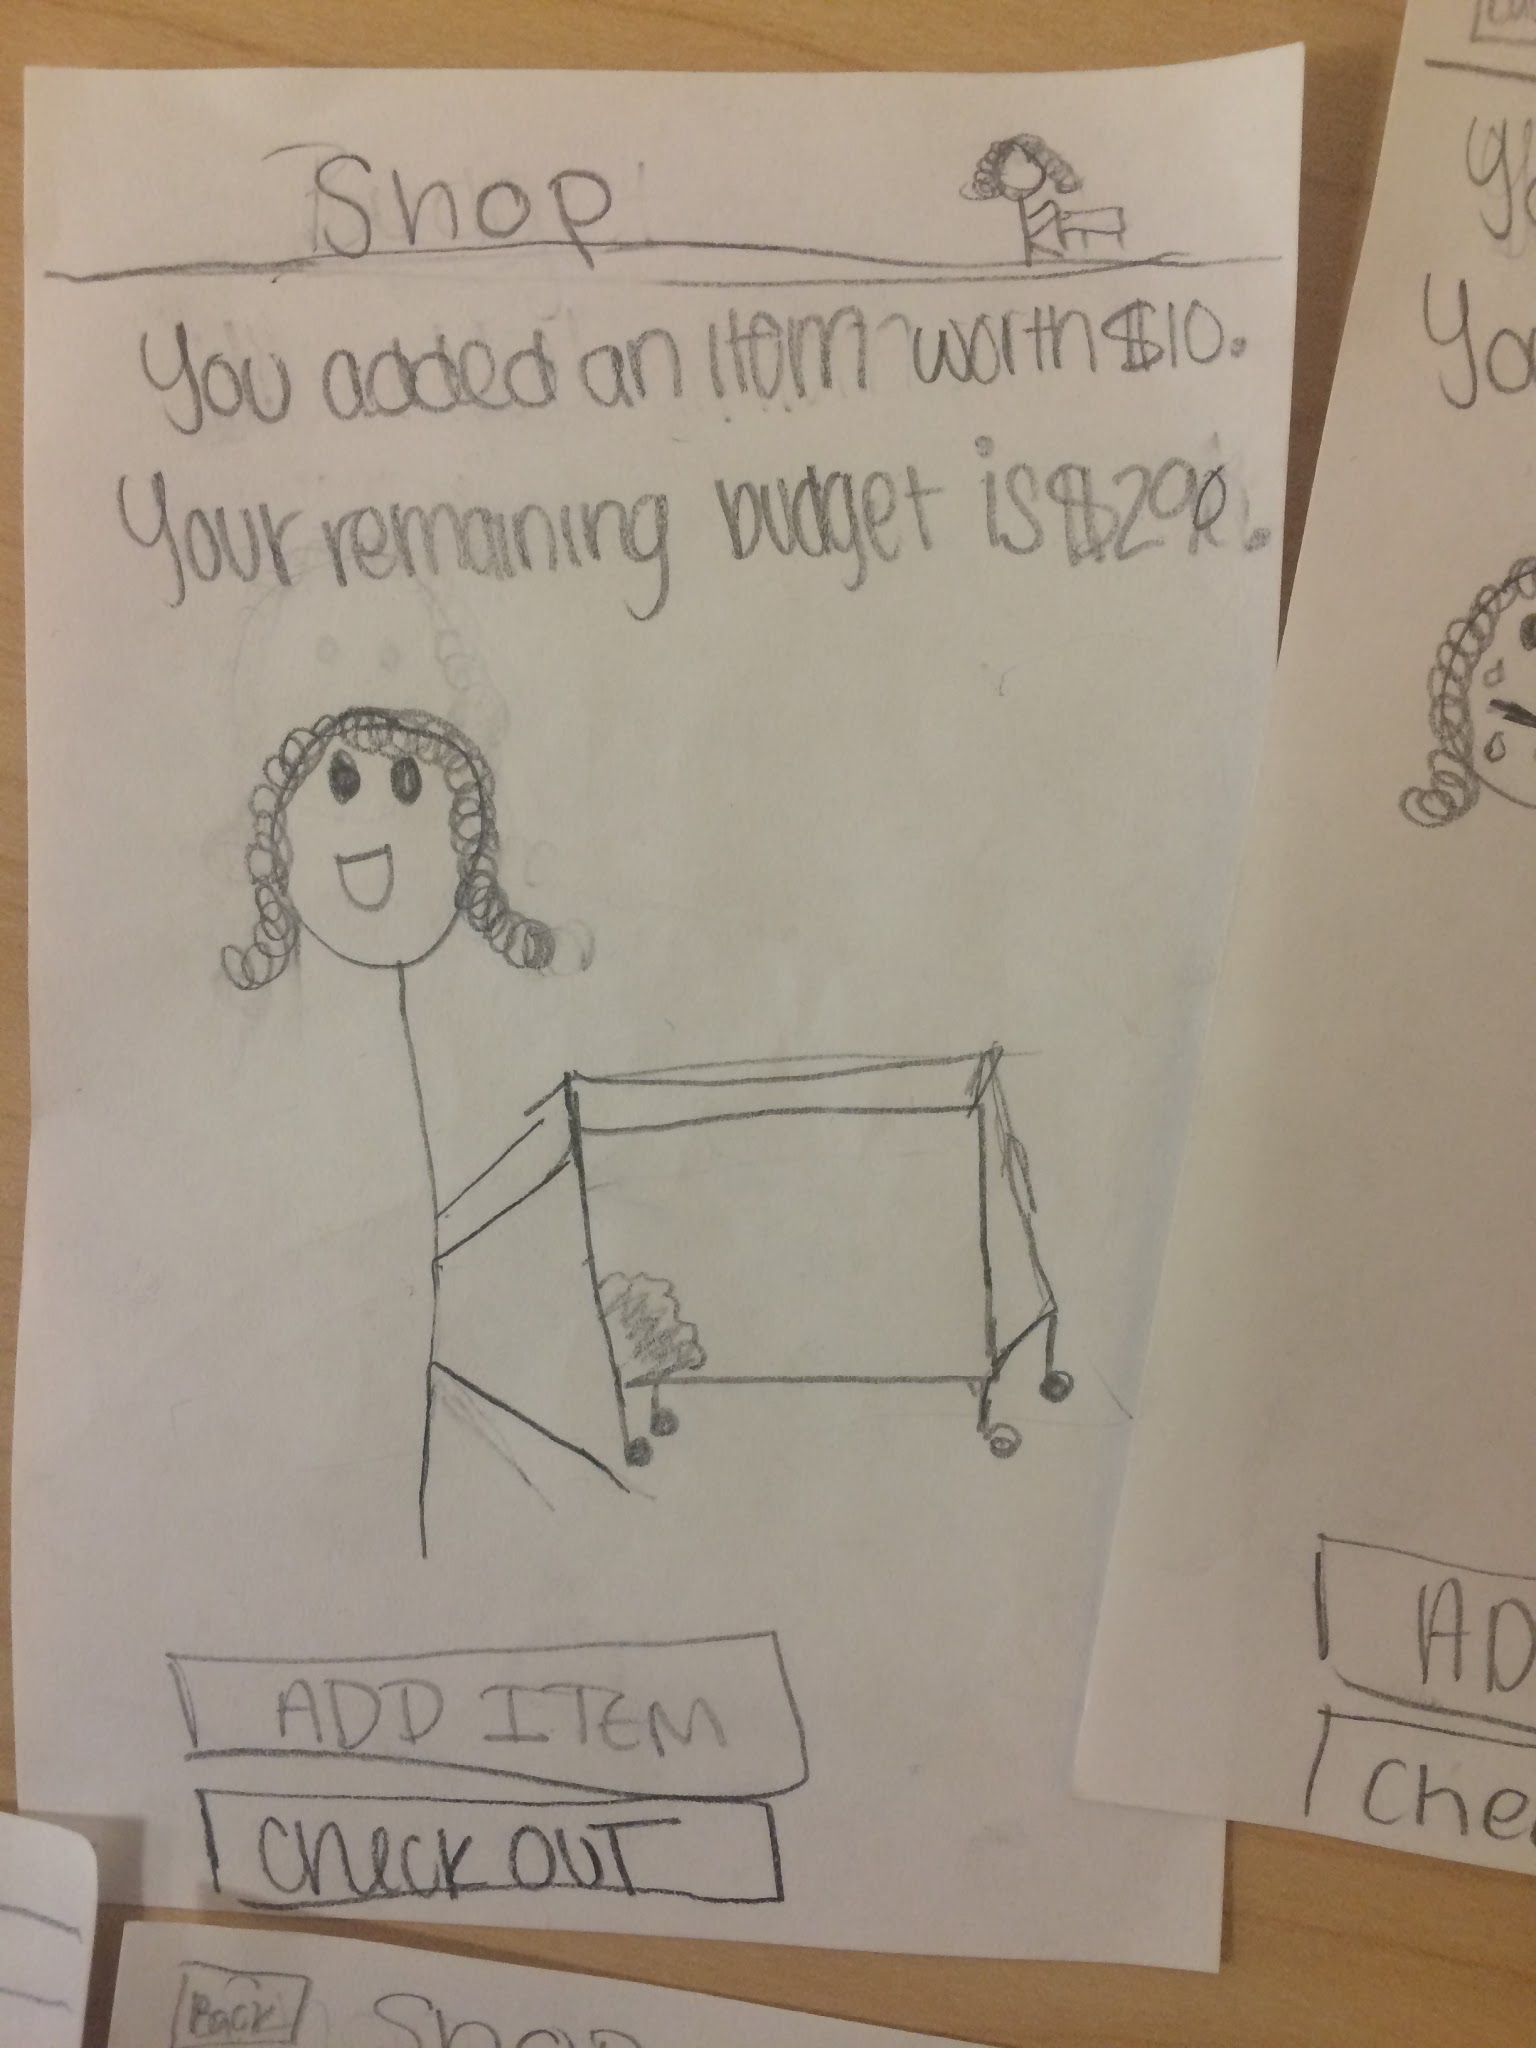 Shop
You added an item worth $10.
Your remaining budget is $290.
ADD ITEM
Check OUT
Yo
AD
Che
Back
Shop